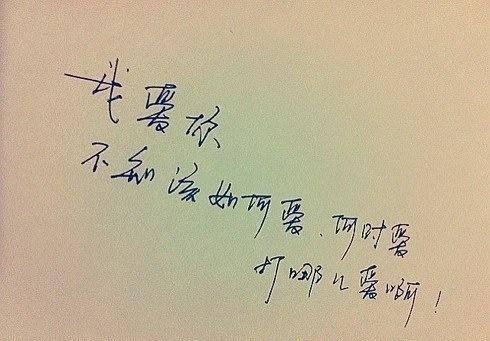 我爱你
不知该如何爱、何时爱
打哪儿爱啊!